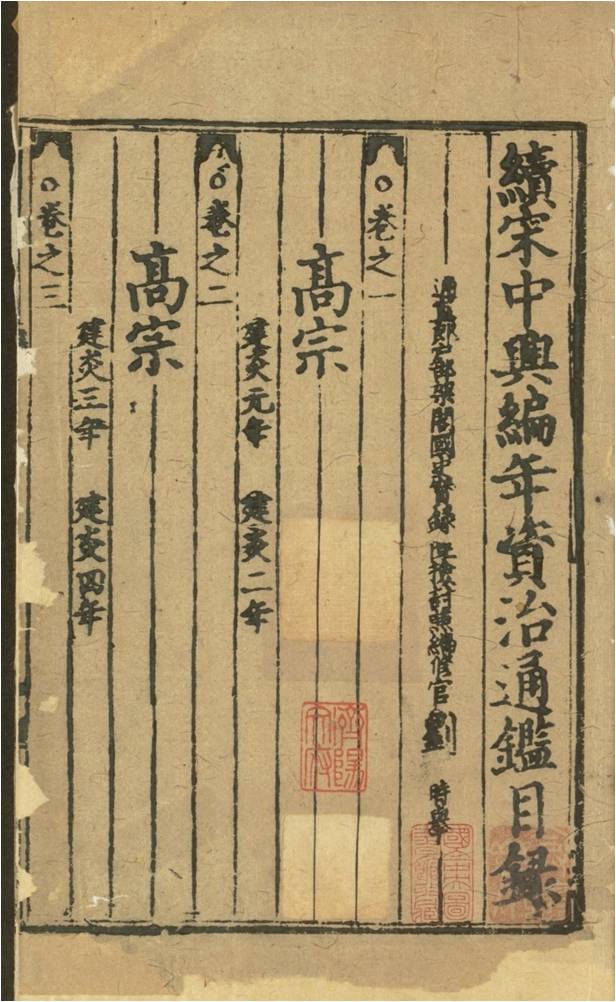 續宋中興編年資治通鑑目録
通直郎户部架閣國史實録院檢討兼編修官劉 時舉
○卷之一
髙宗
建炎元年 建炎二年
○卷之二
髙宗
建炎三年 建炎四年
○卷之三
濟陽文府